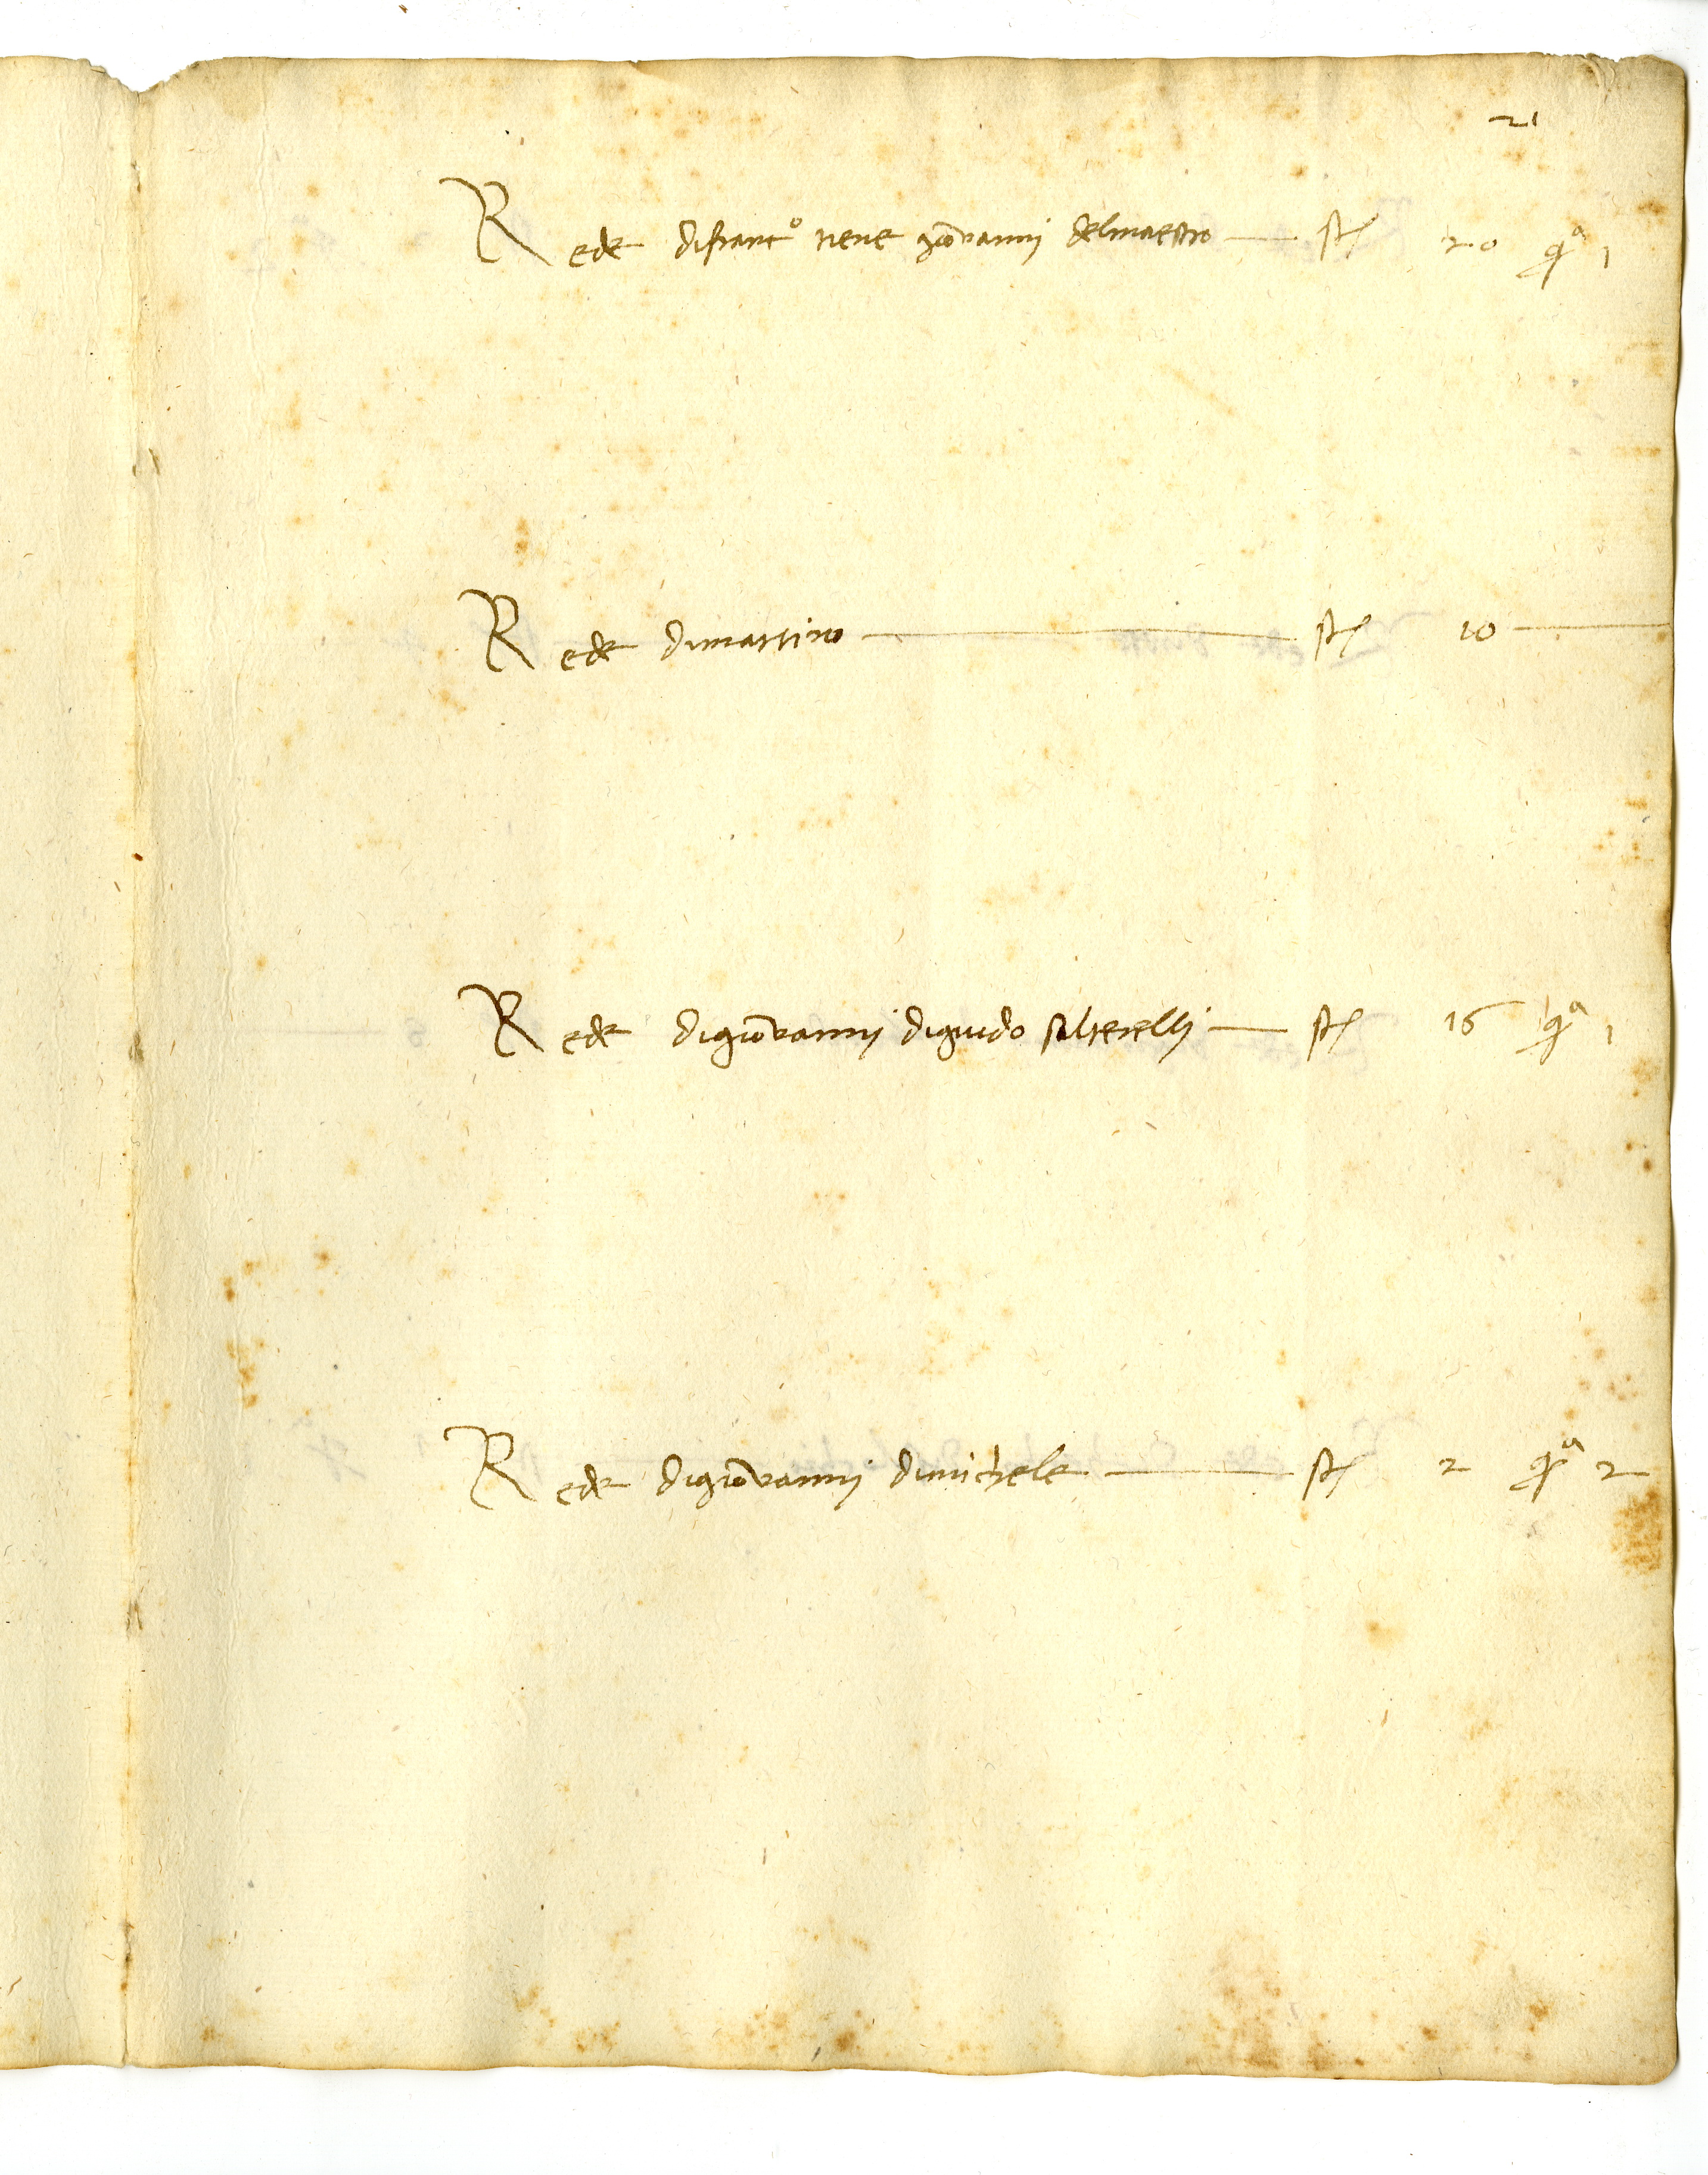 21
Rede difranc° nene giovannj delmaestro — st 20 qª 1
Rede dimartino — st 10 —
Rede digiovannj diguido salterellj — st 16 qª 1
Rede digiovannj dimichele — st 2 qª 2